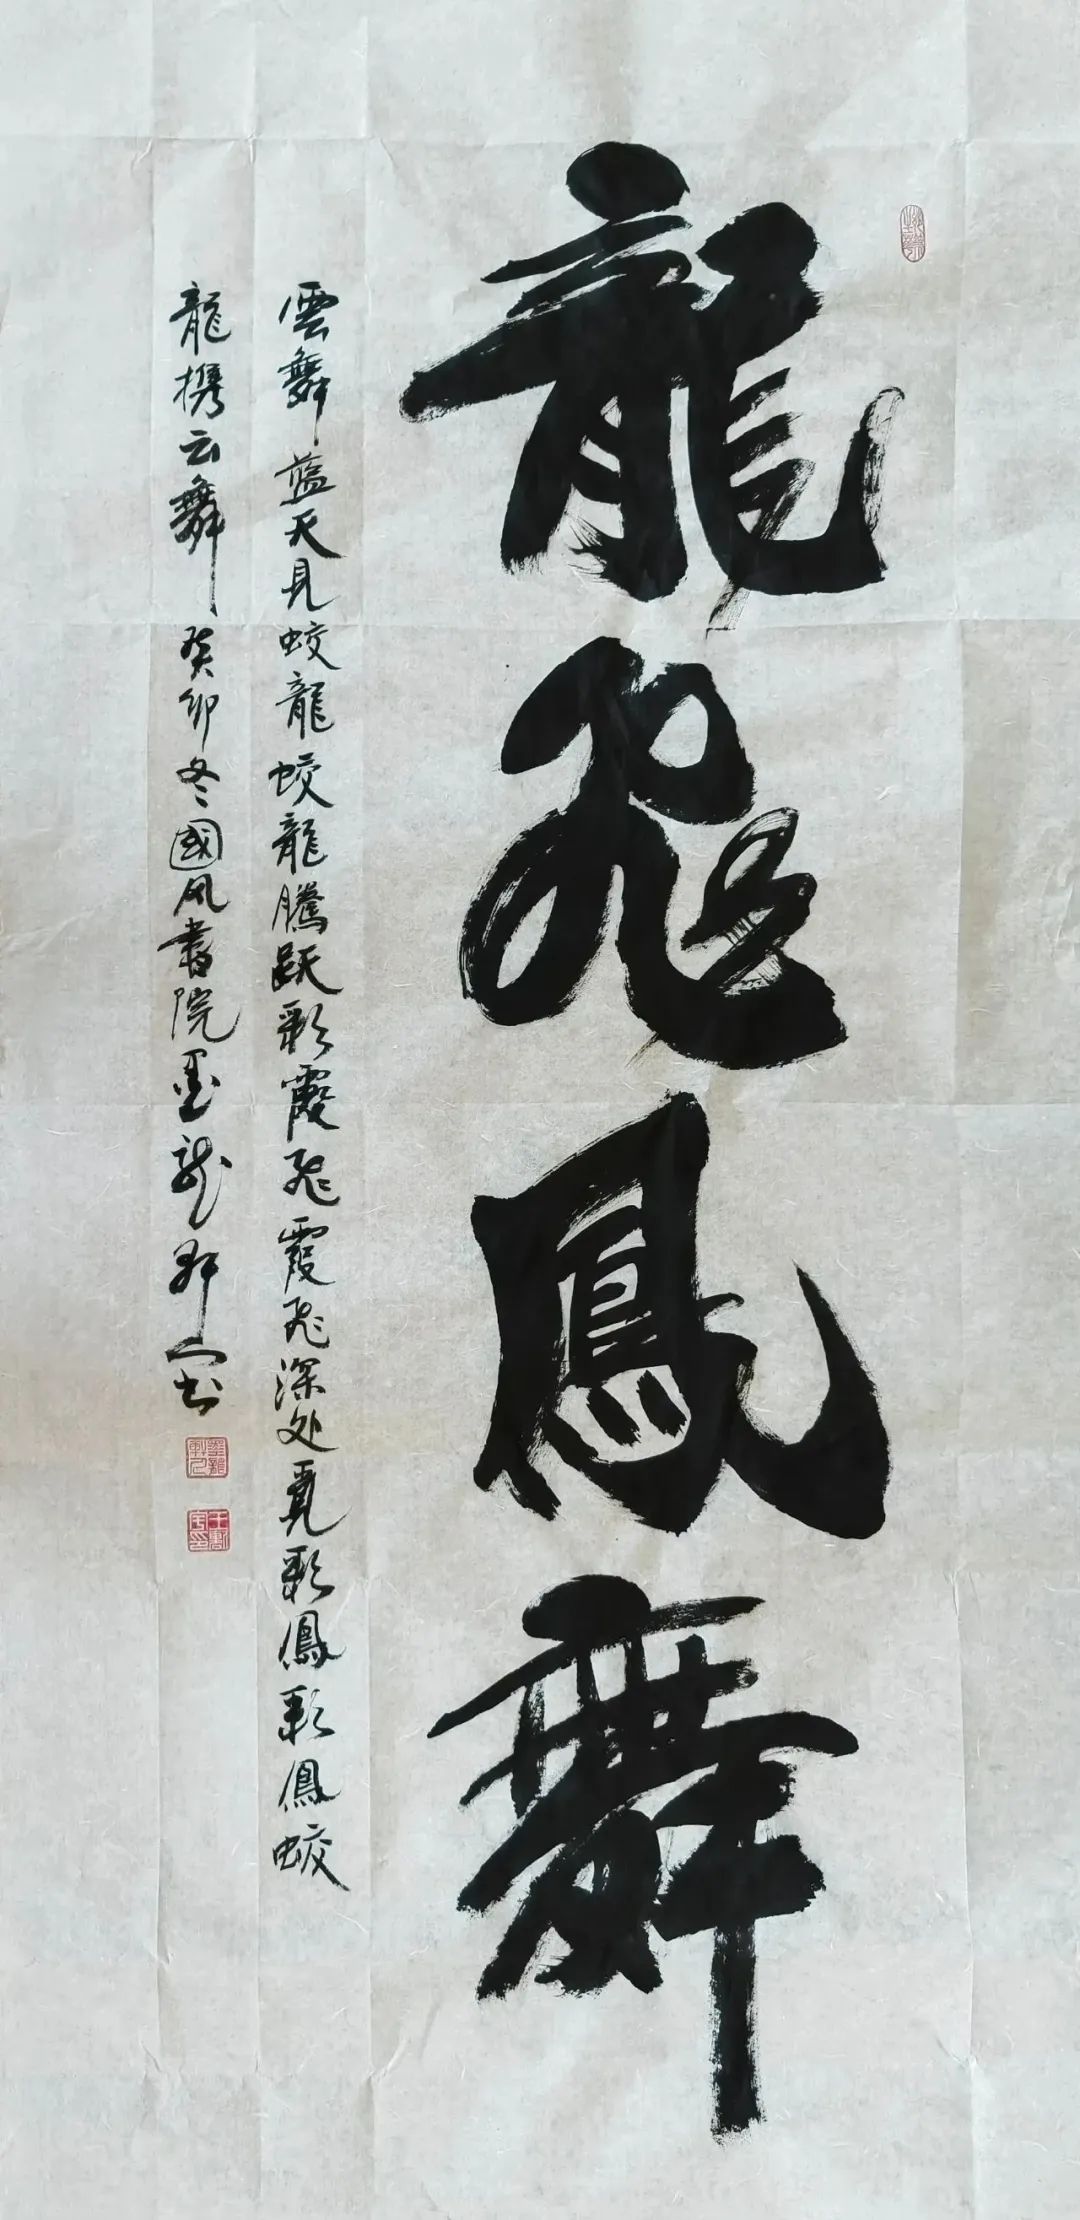 龍飛鳳舞
雲舞蓝天見蛟龍蛟龍騰跃彩霞飛霞飛深处覓彩鳳彩鳳蛟
龍携云舞癸卯冬國风書院墨龙轩